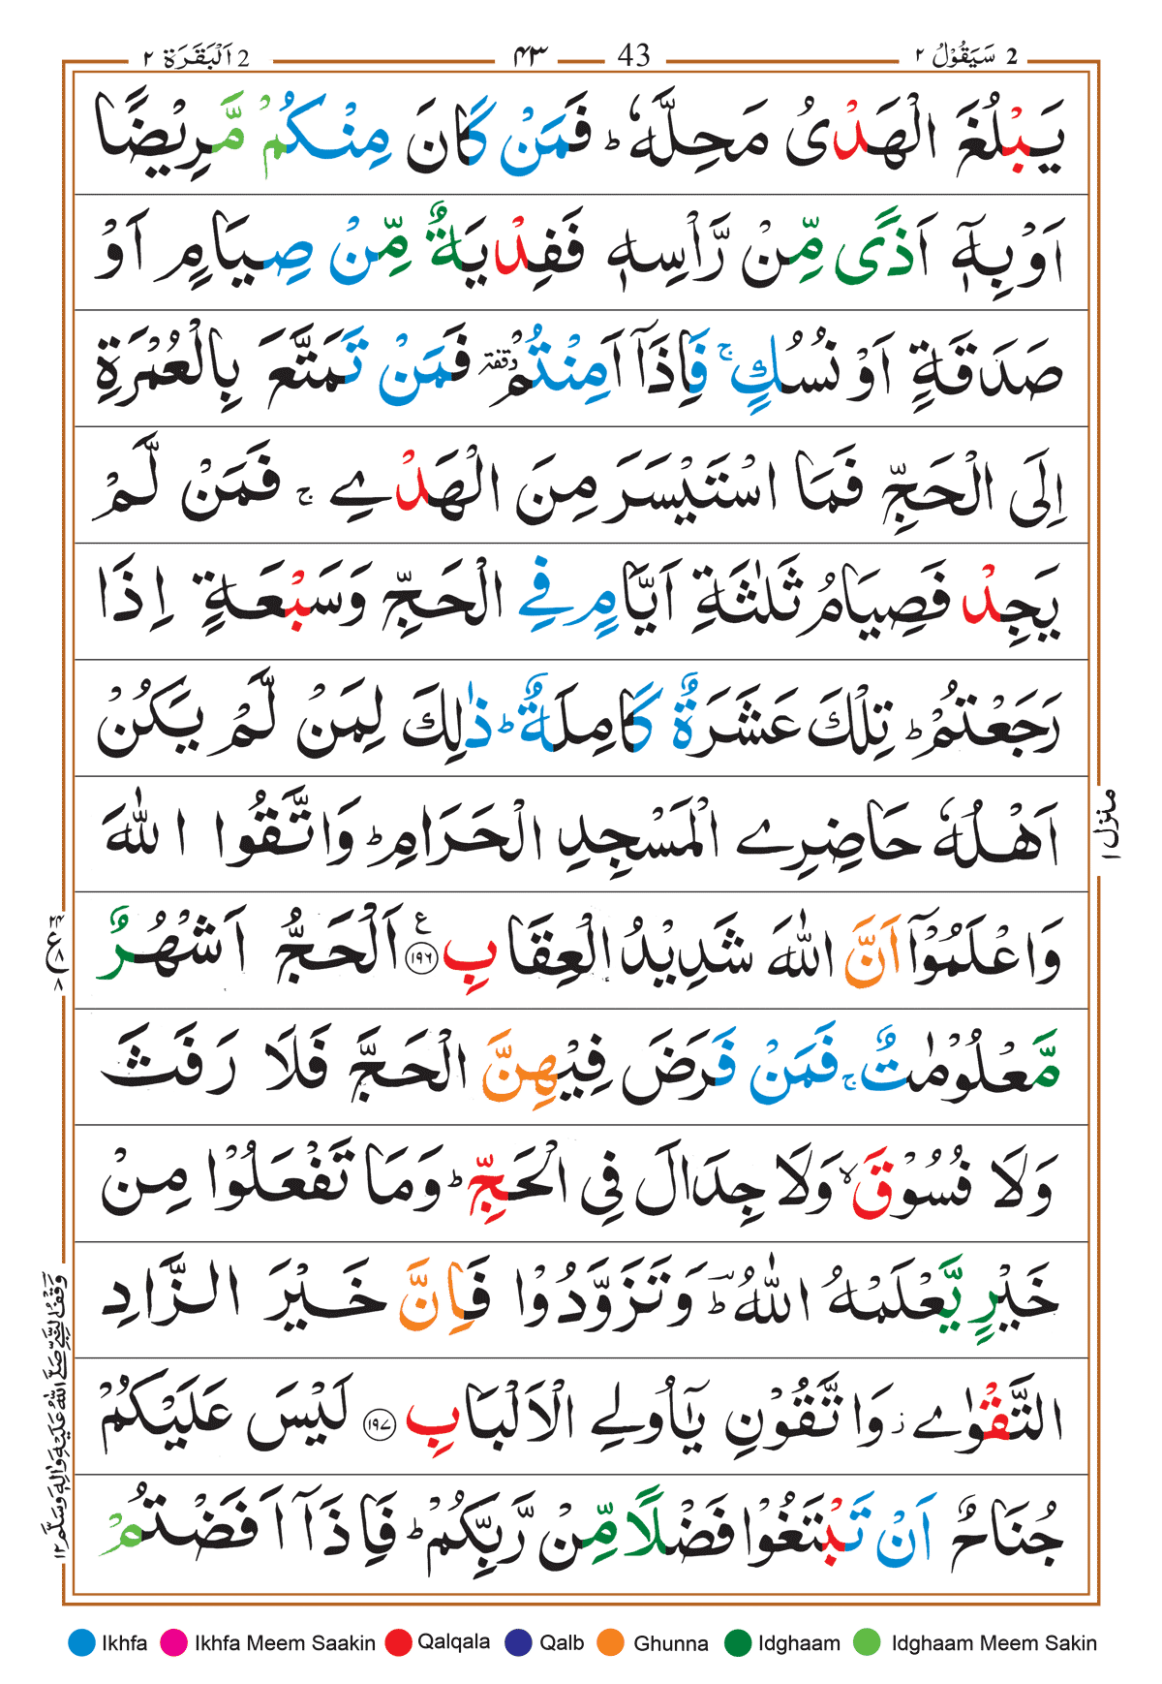 2 سَيَقُوْلُ ٢ 43 ۴۳ 2 اَلْبَقَرَة ٢
يَبْلُغَ الْهَدْىُ مَحِلَّهٗ ؕ فَمَنْ كَانَ مِنْكُمْ مَّرِيْضًا
اَوْ بِهٖۤ اَذًى مِّنْ رَّاْسِهٖ فَفِدْيَةٌ مِّنْ صِيَامٍ اَوْ
صَدَقَةٍ اَوْ نُسُكٍ ۚ فَاِذَاۤ اَمِنْتُمْ وقفة فَمَنْ تَمَتَّعَ بِالْعُمْرَةِ
اِلَى الْحَجِّ فَمَا اسْتَيْسَرَ مِنَ الْهَدْىِ ۚ فَمَنْ لَّمْ
يَجِدْ فَصِيَامُ ثَلٰثَةِ اَيَّامٍ فِى الْحَجِّ وَسَبْعَةٍ اِذَا
رَجَعْتُمْ ؕ تِلْكَ عَشَرَةٌ كَامِلَةٌ ؕ ذٰلِكَ لِمَنْ لَّمْ يَكُنْ
اَهْلُهٗ حَاضِرِى الْمَسْجِدِ الْحَرَامِ ؕ وَاتَّقُوا اللّٰهَ
وَاعْلَمُوْۤا اَنَّ اللّٰهَ شَدِيْدُ الْعِقَابِ ع ١٩٦ اَلْحَجُّ اَشْهُرٌ
مَّعْلُوْمٰتٌ ۚ فَمَنْ فَرَضَ فِيْهِنَّ الْحَجَّ فَلَا رَفَثَ
وَلَا فُسُوْقَ ۙ وَلَا جِدَالَ فِى الْحَجِّ ؕ وَمَا تَفْعَلُوْا مِنْ
خَيْرٍ يَّعْلَمْهُ اللّٰهُ ؕ وَتَزَوَّدُوْا فَاِنَّ خَيْرَ الزَّادِ
التَّقْوٰى ز وَاتَّقُوْنِ يٰۤاُولِى الْاَلْبَابِ ١٩٧ لَيْسَ عَلَيْكُمْ
جُنَاحٌ اَنْ تَبْتَغُوْا فَضْلًا مِّنْ رَّبِّكُمْ ؕ فَاِذَاۤ اَفَضْتُمْ
منزل ١
وَقْفُ النَّبِيِّ صَلَّى اللّٰهُ عَلَيْهِ وَاٰلِهٖ وَسَلَّمَ ١٢
Ikhfa Ikhfa Meem Saakin Qalqala Qalb Ghunna Idghaam Idghaam Meem Sakin